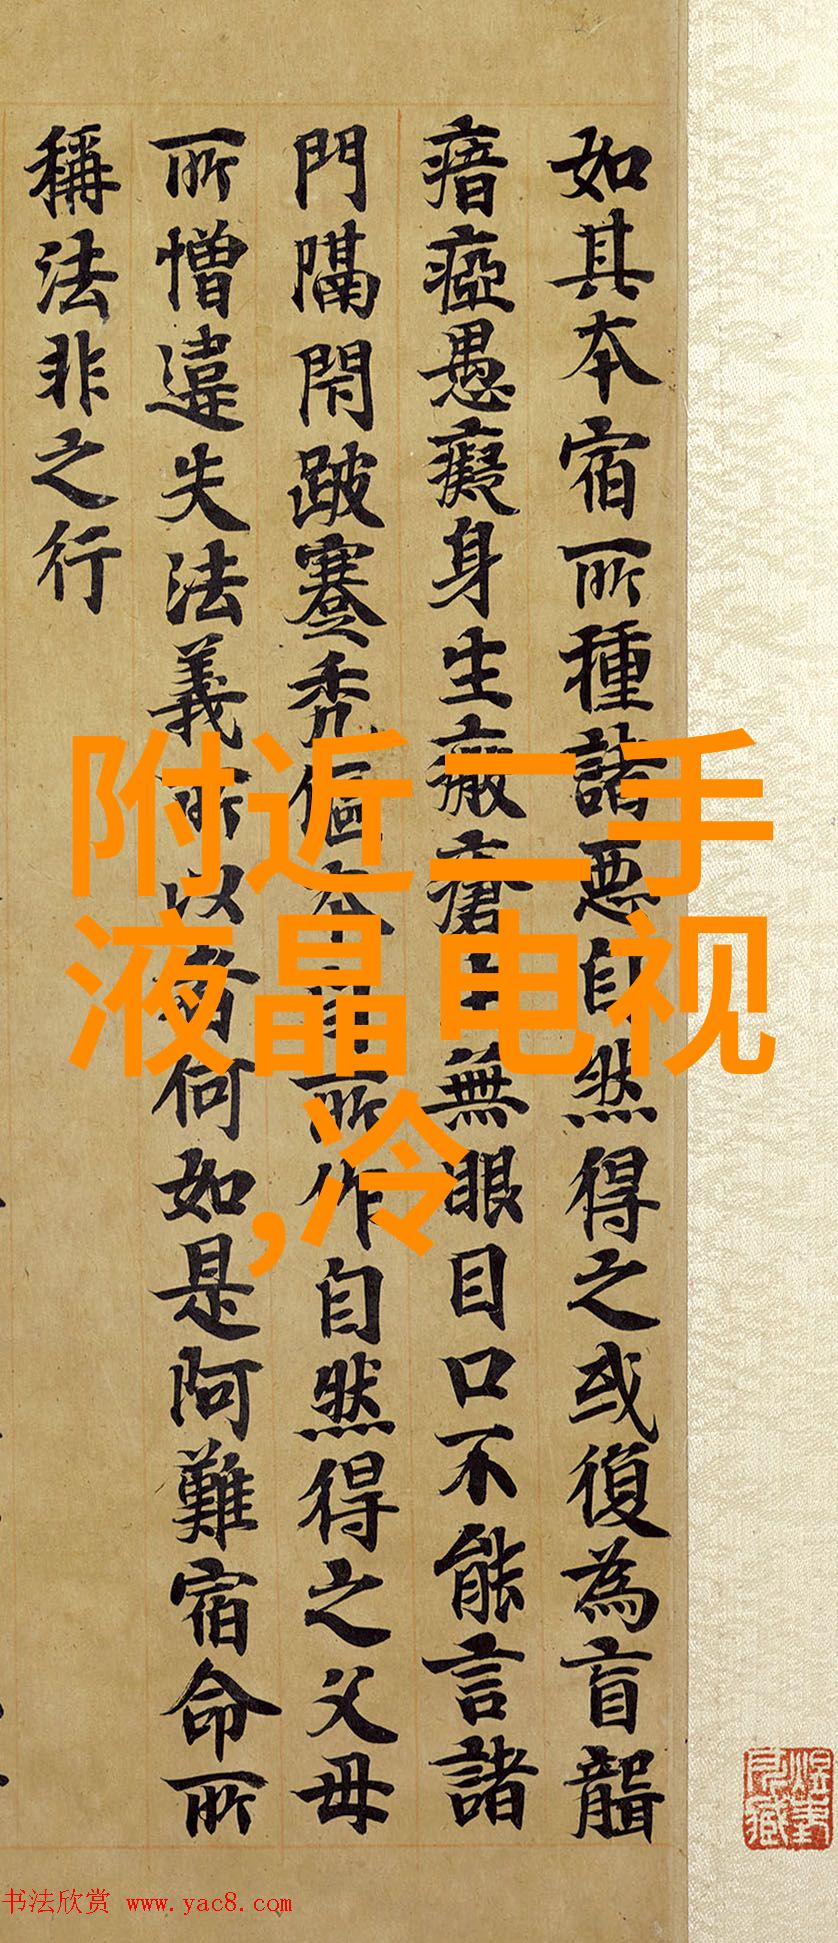 如其本宿所種諸惡自然得之或復為盲聾
瘖瘂愚癡身生癥瘡士無眼目口不能言諸
門隔閇跛蹇禿傴本自所作自然得之父母
所憎違失法義所以者何如是阿難宿命所
稱法非之行
附近二手
液晶电视
,冷
书法欣赏 www.yac8.com